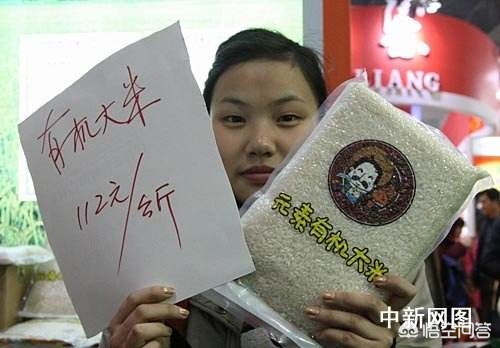 LIANG
有机大米
112元/斤
元素有机大米
中新网图
悟空问答